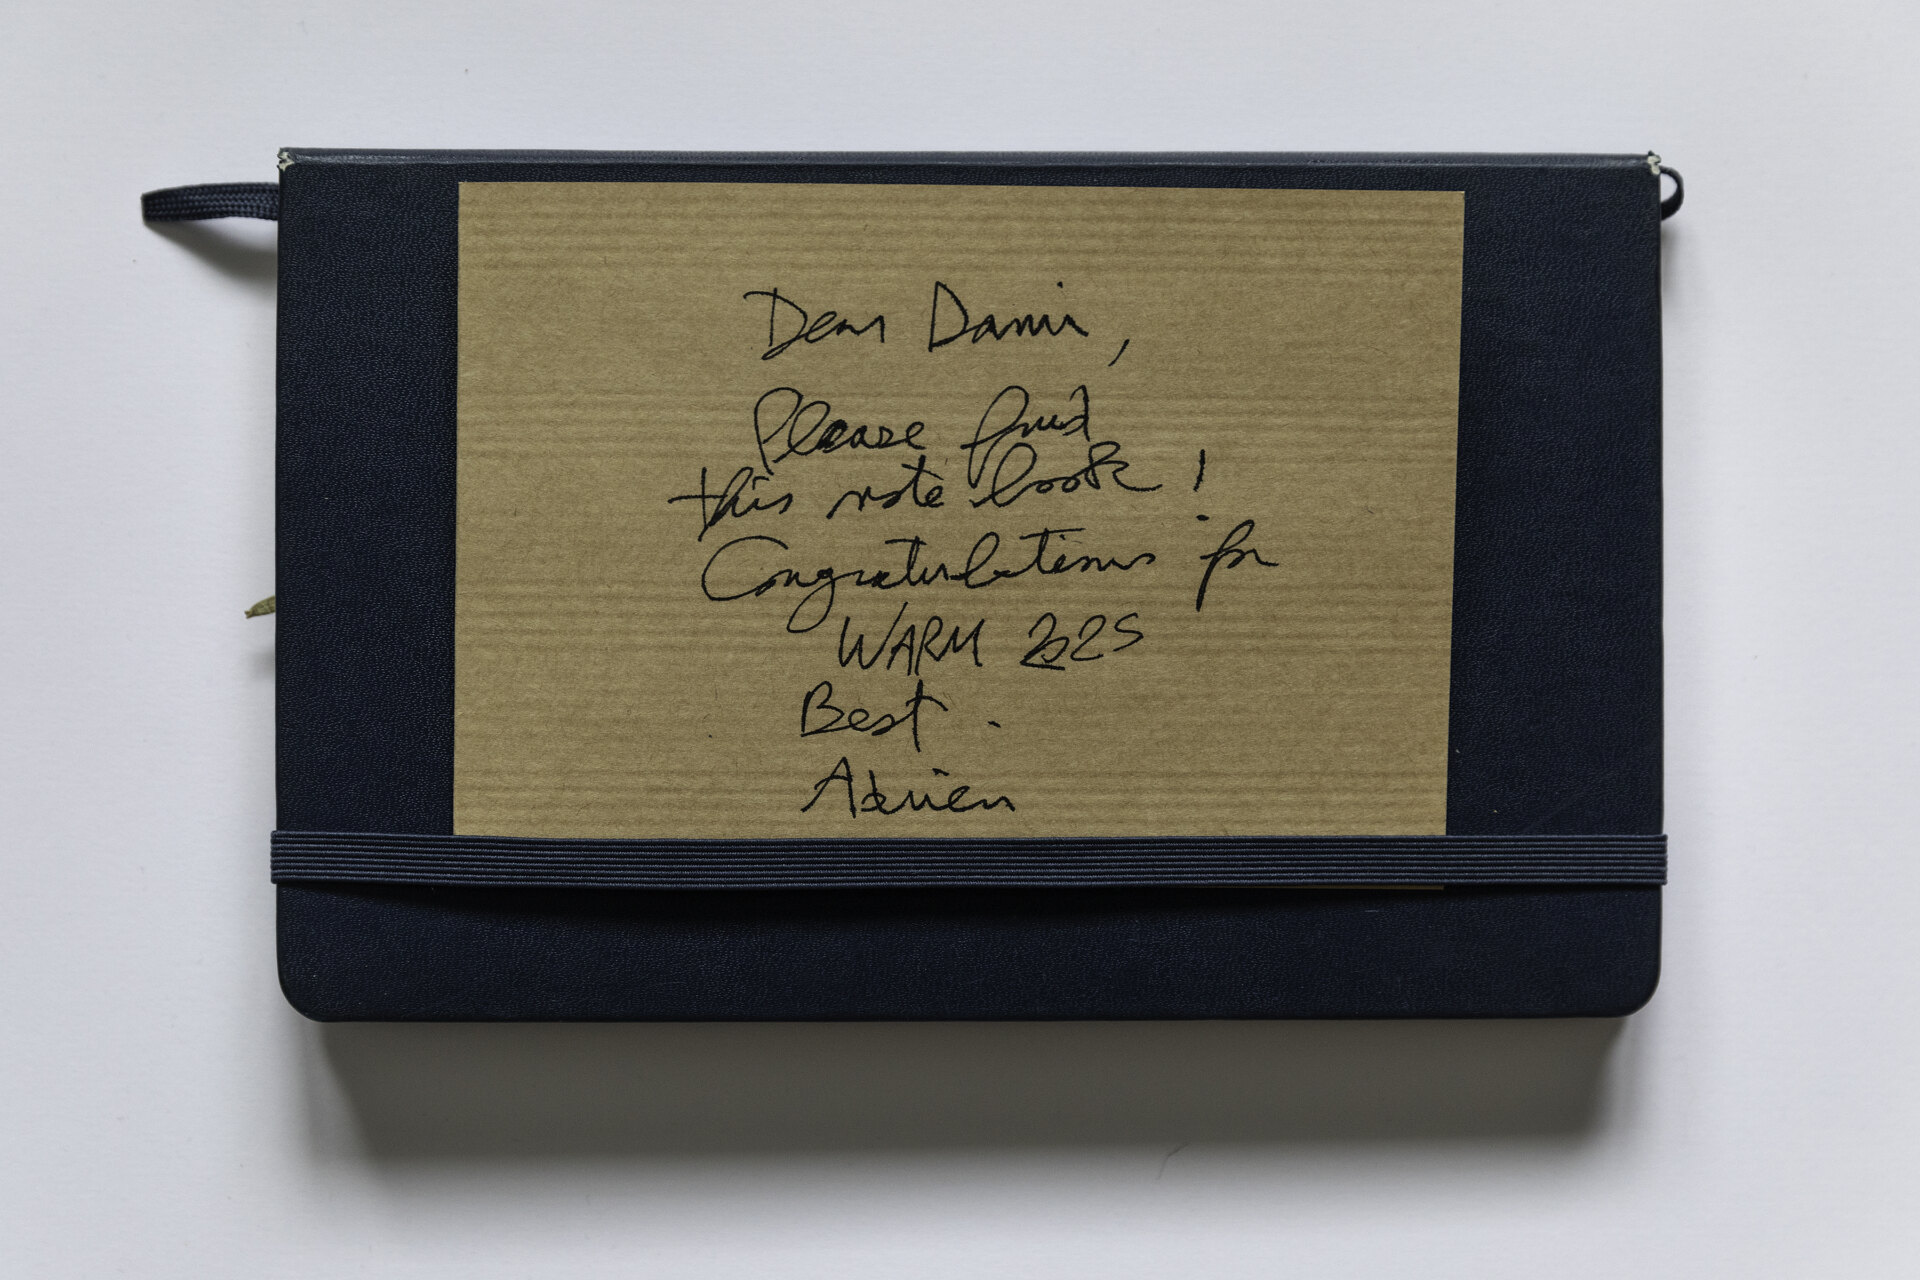 Dear Damir,
Please find
this note book!
Congratulations for
WARM 2025
Best.
Adrien